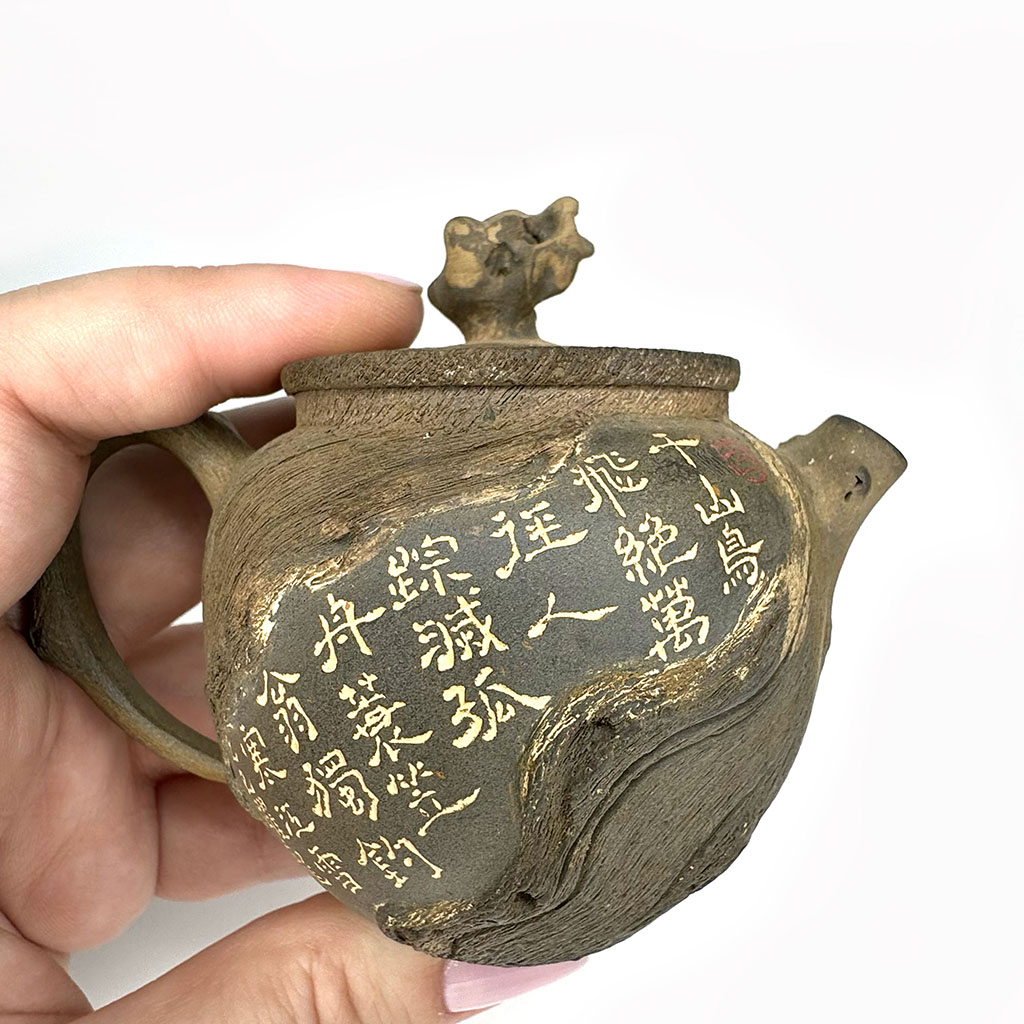 千山鳥
飛絕萬
徑人
踪滅孤
舟蓑笠
翁獨釣
寒江雪